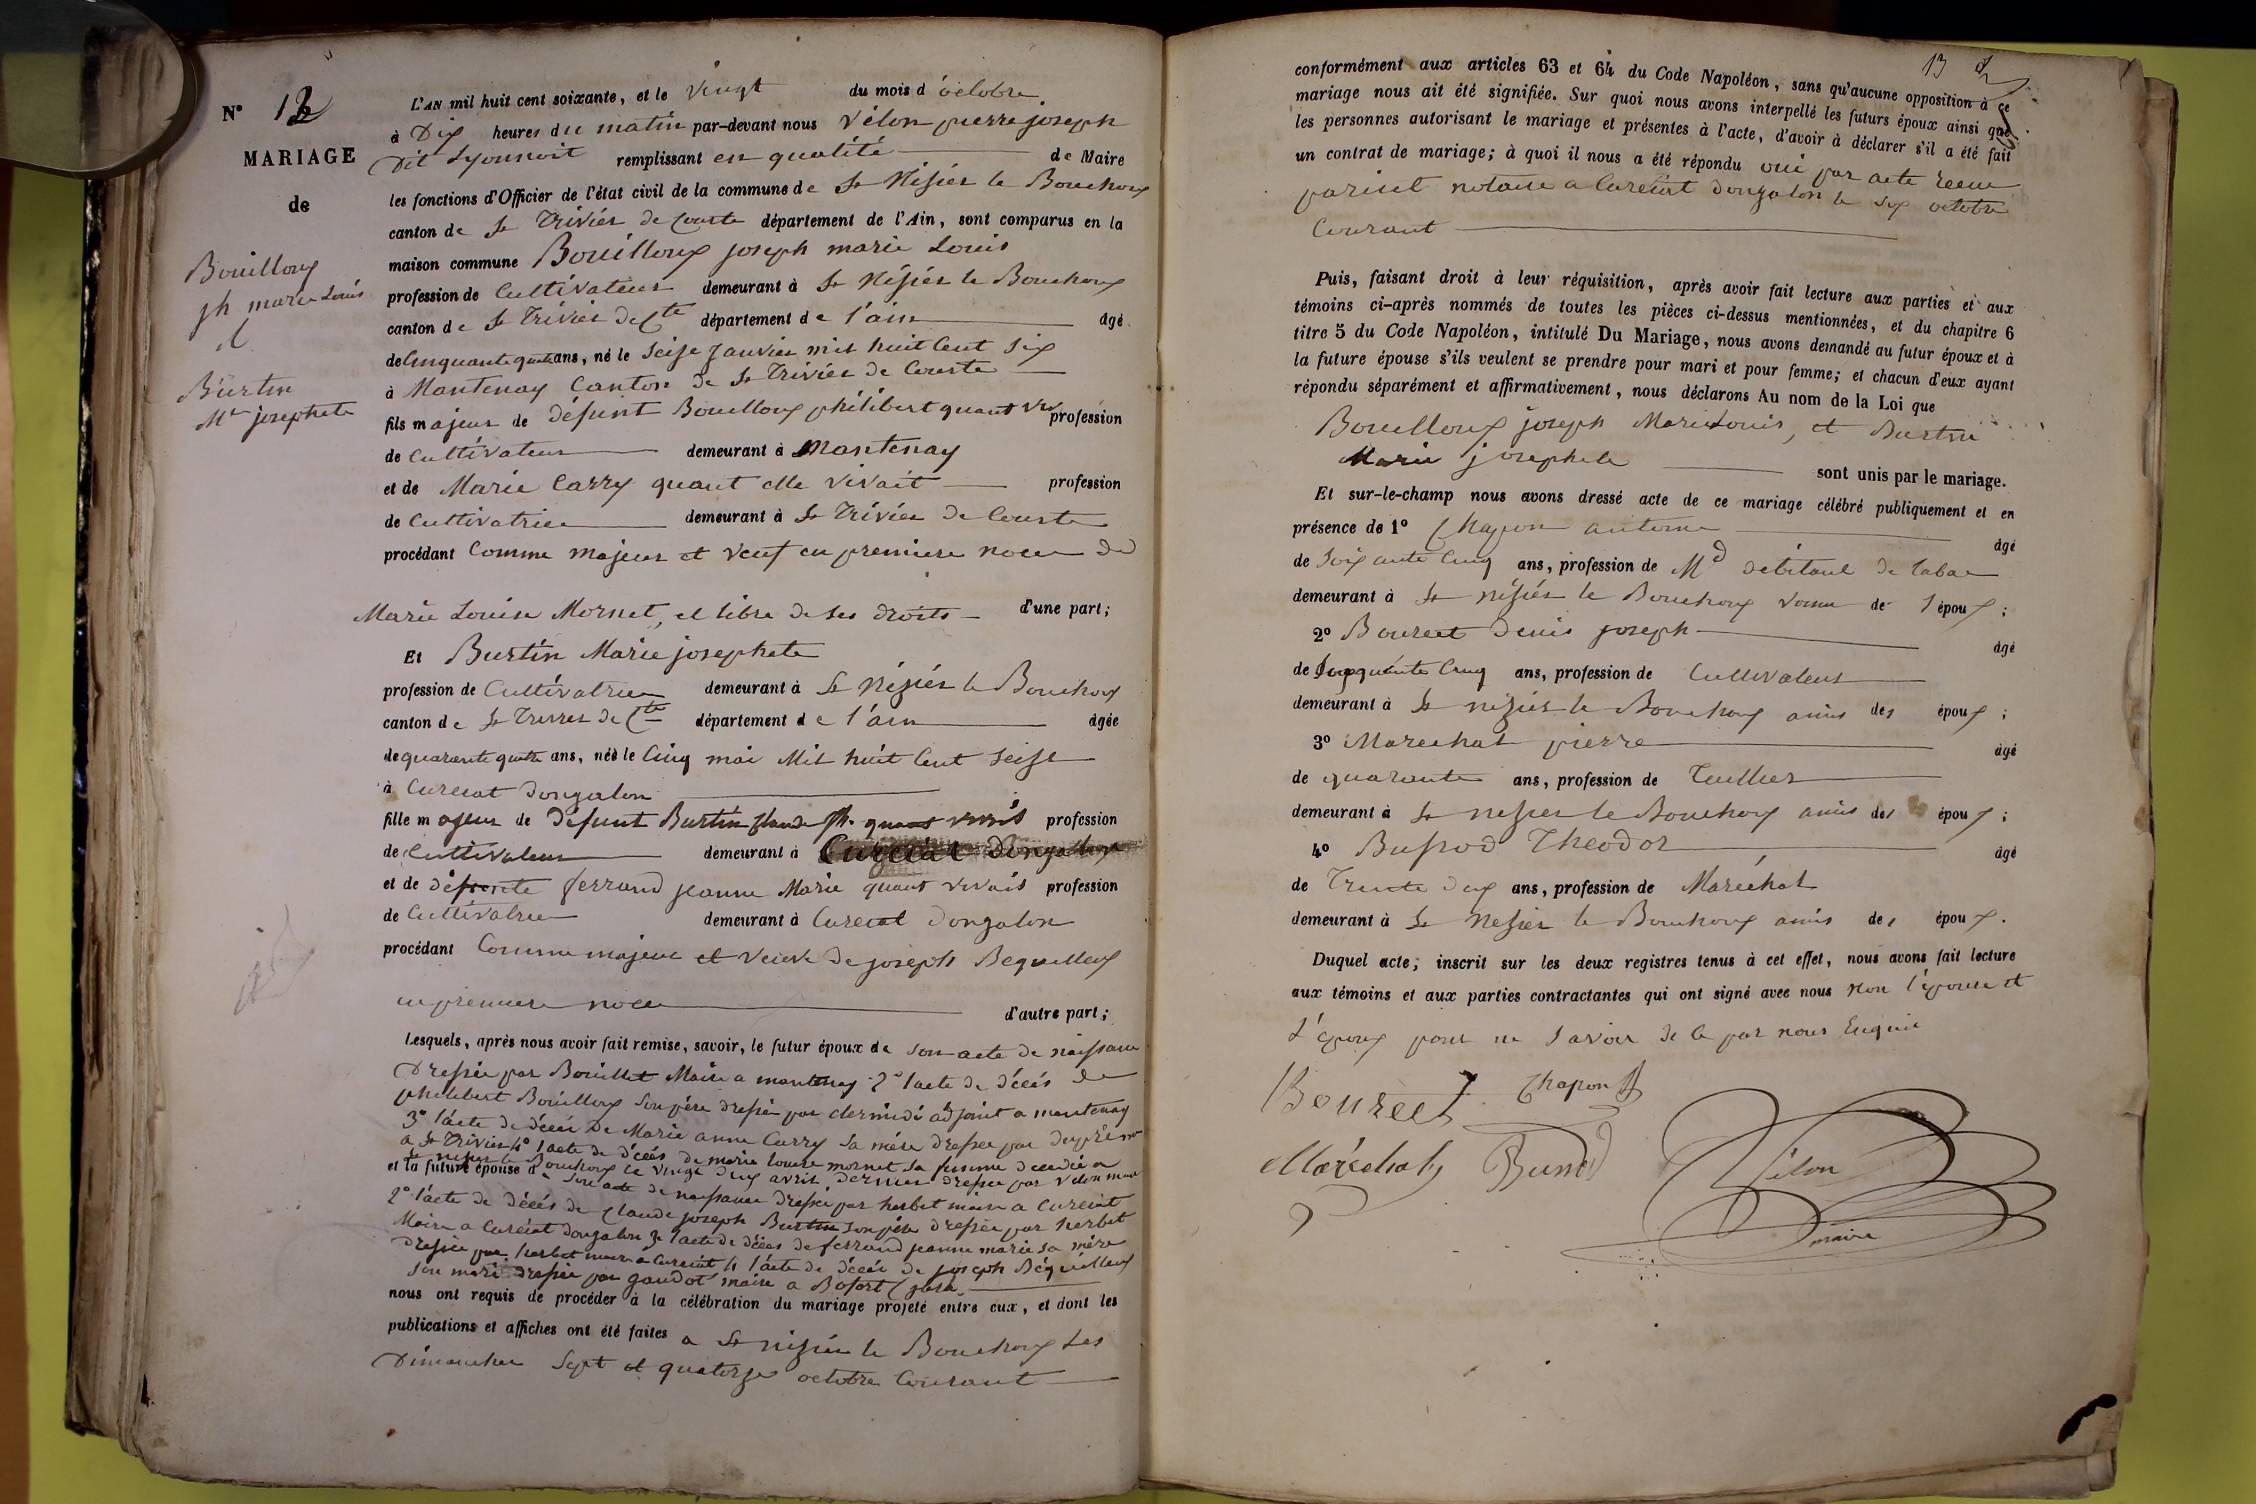 N° 12
MARIAGE
de
Bouilloux
jh marie Louis
et
Burtin
Mie josephete
L'AN mil huit cent soixante, et le vingt du mois d'octobre
à Dix heures du matin par-devant nous Vélon pierre joseph
Dit Lyonnoit remplissant en qualité de Maire
les fonctions d'Officier de l'état civil de la commune de St Nésiér le Bouchoux
canton de St Triviér de Courte département de l'Ain, sont comparus en la
maison commune Bouilloux joseph marie Louis
profession de Cultivateur demeurant à St Nésiér le Bouchoux
canton de St Triviér de Cte département de l'ain âgé
de Cinquante quatre ans, né le Seise Janvier mil huit Cent Six
à Mantenay Canton de St Triviér de Courte
fils majeur de défunt Bouilloux philibert quant viv profession
de Cultivateur demeurant à Mantenay
et de Marie Carry quant elle vivait profession
de Cultivatrice demeurant à St Triviér de Courte
procédant Comme majeur et veuf en premiere noce de
Marie Louise Mornet, et libre de ses droits d'une part;
Et Burtin Marie josephete
profession de Cultivatrice demeurant à St Nésiér le Bouchoux
canton de St Trivier de Cte département de l'ain âgée
de quarante quatre ans, née le Cinq mai Mil huit Cent Seise
à Cureciat dongalon
fille majeur de défunt Burtin Claude jh. quant vivais profession
de Cultivateur demeurant à Cureciat Dongalon
et de défunte ferrand jeanne Marie quant vivais profession
de Cultivatrice demeurant à Cureciat Dongalon
procédant Comme majeur et veuve de joseph Bequilleux
en premiere noce d'autre part;
Lesquels, après nous avoir fait remise, savoir, le futur époux de son acte de naissance
Dressée par Bouillet Maire a mantenay 2° l'acte de décés de
philibert Bouilloux son pére dressée par dermidi adjoint a mantenay
3° l'acte de décés De Marie anne Carry sa mére dressée par dupré
a St Trivier 4° l'acte de décés de marie louise mornet sa femme décédée a
St nésier le Bouchoux le vingt deux avril dernier dressée par Velon maire
et la future épouse de son acte de naissance dressée par herbet maire a Cureciat
2° l'acte de décés de Claude joseph Burtin son pére dressée par herbet
Maire a Cureciat dongalon 3e l'acte de décés de ferrand jeanne marie sa mére
dressée par herbet maire a Cureciat 4 l'acte de décés de joseph Béquilleux
son mari dressée par gaudot maire a Bofort (jura)
nous ont requis de procéder à la célébration du mariage projeté entre eux, et dont les
publications et affiches ont été faites a St nisiér le Bouchoux Les
Dimanches Sept et quatorze octobre Courant
13
conformément aux articles 63 et 64 du Code Napoléon, sans qu'aucune opposition à ce
mariage nous ait été signifiée. Sur quoi nous avons interpellé les futurs époux ainsi que
les personnes autorisant le mariage et présentes à l'acte, d'avoir à déclarer s'il a été fait
un contrat de mariage; à quoi il nous a été répondu oui par acte recue
pariset notaire a Cureciat dongalon le six octobre
Courant
Puis, faisant droit à leur réquisition, après avoir fait lecture aux parties et aux
témoins ci-après nommés de toutes les pièces ci-dessus mentionnées, et du chapitre 6
titre 5 du Code Napoléon, intitulé Du Mariage, nous avons demandé au futur époux et à
la future épouse s'ils veulent se prendre pour mari et pour femme; et chacun d'eux ayant
répondu séparément et affirmativement, nous déclarons Au nom de la Loi que
Bouilloux joseph Marie Louis, et Burtin
Marie josephete sont unis par le mariage.
Et sur-le-champ nous avons dressé acte de ce mariage célébré publiquement et en
présence de 1° Chapon antoine âgé
de Soixante Cinq ans, profession de Md débitant de tabac
demeurant à St nésiér le Bouchoux voisin de l'époux;
2° Boureet Denis joseph âgé
de Cinquante Cinq ans, profession de Cultivateur
demeurant à St nésiér le Bouchoux amis des époux;
3° Marechal pierre âgé
de quarante ans, profession de Tuillier
demeurant à St nesier le Bouchoux amis des époux;
4° Bussod Theodor âgé
de Trente deux ans, profession de Maréchal
demeurant à St Nesier le Bouchoux amis des époux.
Duquel acte, inscrit sur les deux registres tenus à cet effet, nous avons fait lecture
aux témoins et aux parties contractantes qui ont signé avec nous Non l'épouse et
L'époux pour ne savoir de la par nous Enquie
Boureet Chapon
Maréchal Bussod Vélon
maire